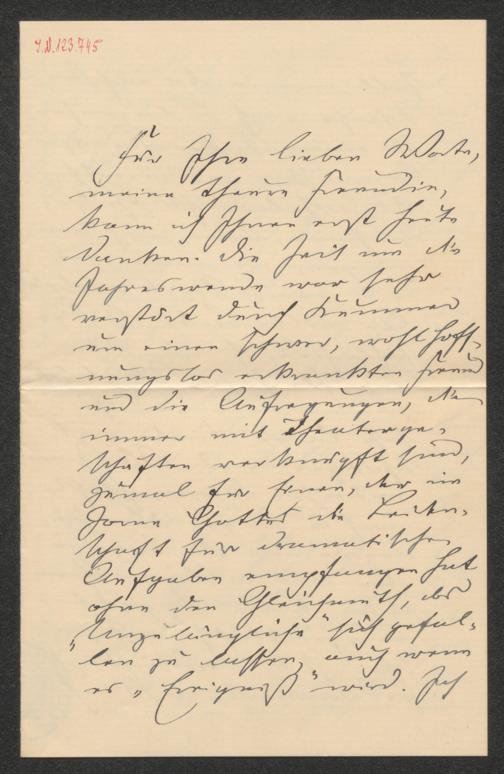 I.N. 123.745
Für Ihre lieben Worte,
meine theure Freundin,
kann ich Ihnen erst heute
danken. Die Zeit um die
Jahreswende war sehr
verstört durch Kummer
um einen schwer, wohl hoff-
nungslos erkrankten Freund
und die Aufregungen, die
immer mit Theaterge-
schäften verknüpft sind,
zumal für Einen, der im
Zorne Gottes die Leiden-
schaft für dramatische
Aufgaben empfangen hat
ohne den Gleichmuth, das
„Unzulängliche" sich gefal-
len zu lassen, auch wenn
es „Ereigniß" wird. Ich